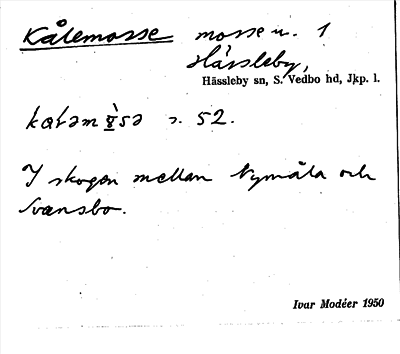 Kålemosse mosse n. 1
Hässleby,
Hässleby sn, S. Vedbo hd, Jkp. l.
s. 52.
I skogen mellan Nymåla och
Svensbo.
Ivar Modéer 1950